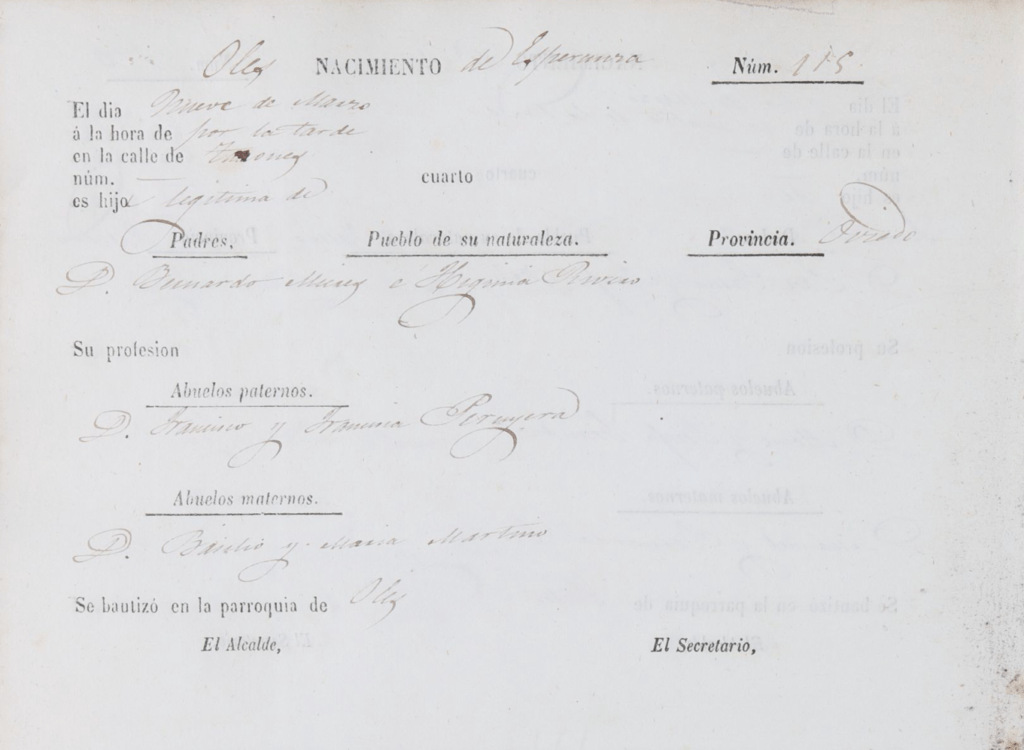 Oles NACIMIENTO de Esperanza Núm. 115
El dia Nueve de Marzo
á la hora de por la tarde
en la calle de
núm. — cuarto
es hija legitima de
Padres. Pueblo de su naturaleza. Provincia. Oviedo
D. Bernardo Mieres é Higinia Rivero
Su profesion
Abuelos paternos.
D. Francisco y Francisca Peruyera
Abuelos maternos.
D. Basilio y Maria Martino
Se bautizó en la parroquia de Oles
El Alcalde, El Secretario,